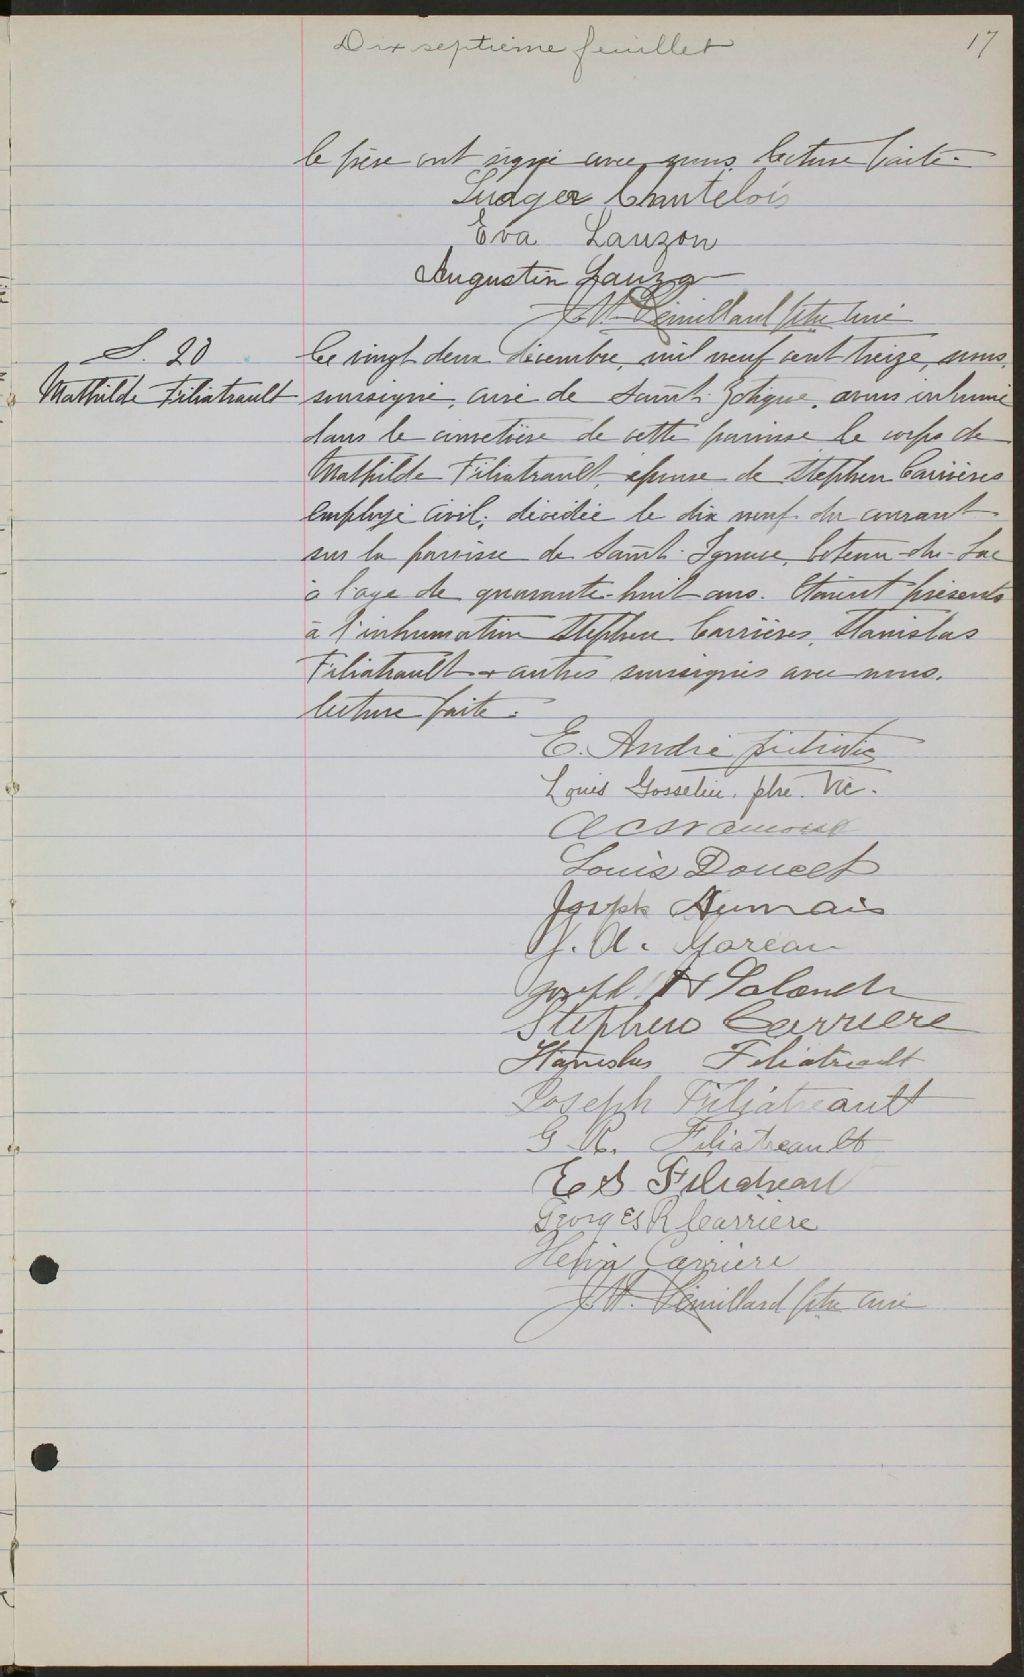 Dix septième feuillet
17
le père ont signé avec nous. lecture faite.
Ludger Cantelois
Eva Lauzon
Augustin Lauzo
ptre curé
S. 20
Mathilde Filiatrault
Le vingt deux décembre, mil neuf cent treize, nous,
soussigné, curé de Saint Zotique, avons inhumé
dans le cimetière de cette paroisse le corps de
Mathilde Filiatrault, épouse de Stephen Carrières
employé civil, décédée le dix neuf du courant
sur la paroisse de Saint-Ignace, Coteau-du-Lac
à l'age de quarante-huit ans. Etaient présents
à l'inhumation Stephen Carrières, Stanislas
Filiatrault + autres soussignés avec nous.
lecture faite.
E. André
Louis Gosselin. ptre. vic.
Louis Doucet
Joseph Aumais
J. A. Moreau
Joseph Lalonde
Stephen Carriere
Stanislas Filiatrault
Joseph Filiatreault
G R. Filiatreault
E S Filiatreault
Georges R Carriere
Carriere
ptre curé